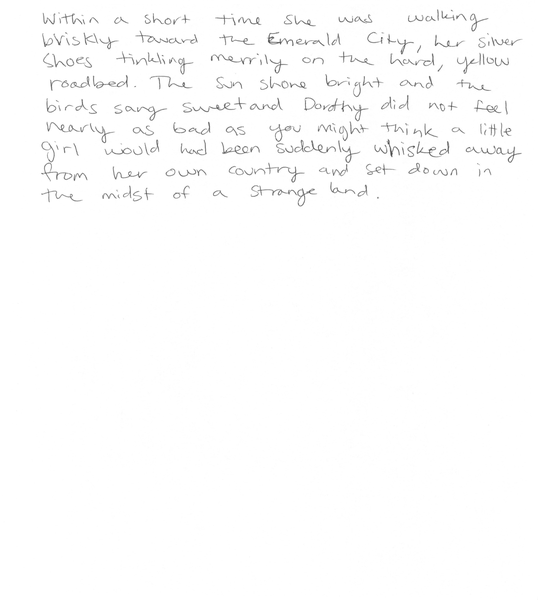 Within a short time she was walking
briskly toward the Emerald City, her silver
shoes tinkling merrily on the hard, yellow
roadbed. The sun shone bright and the
birds sang sweet and Dorothy did not feel
nearly as bad as you might think a little
girl would had been suddenly whisked away
from her own country and set down in
the midst of a strange land.